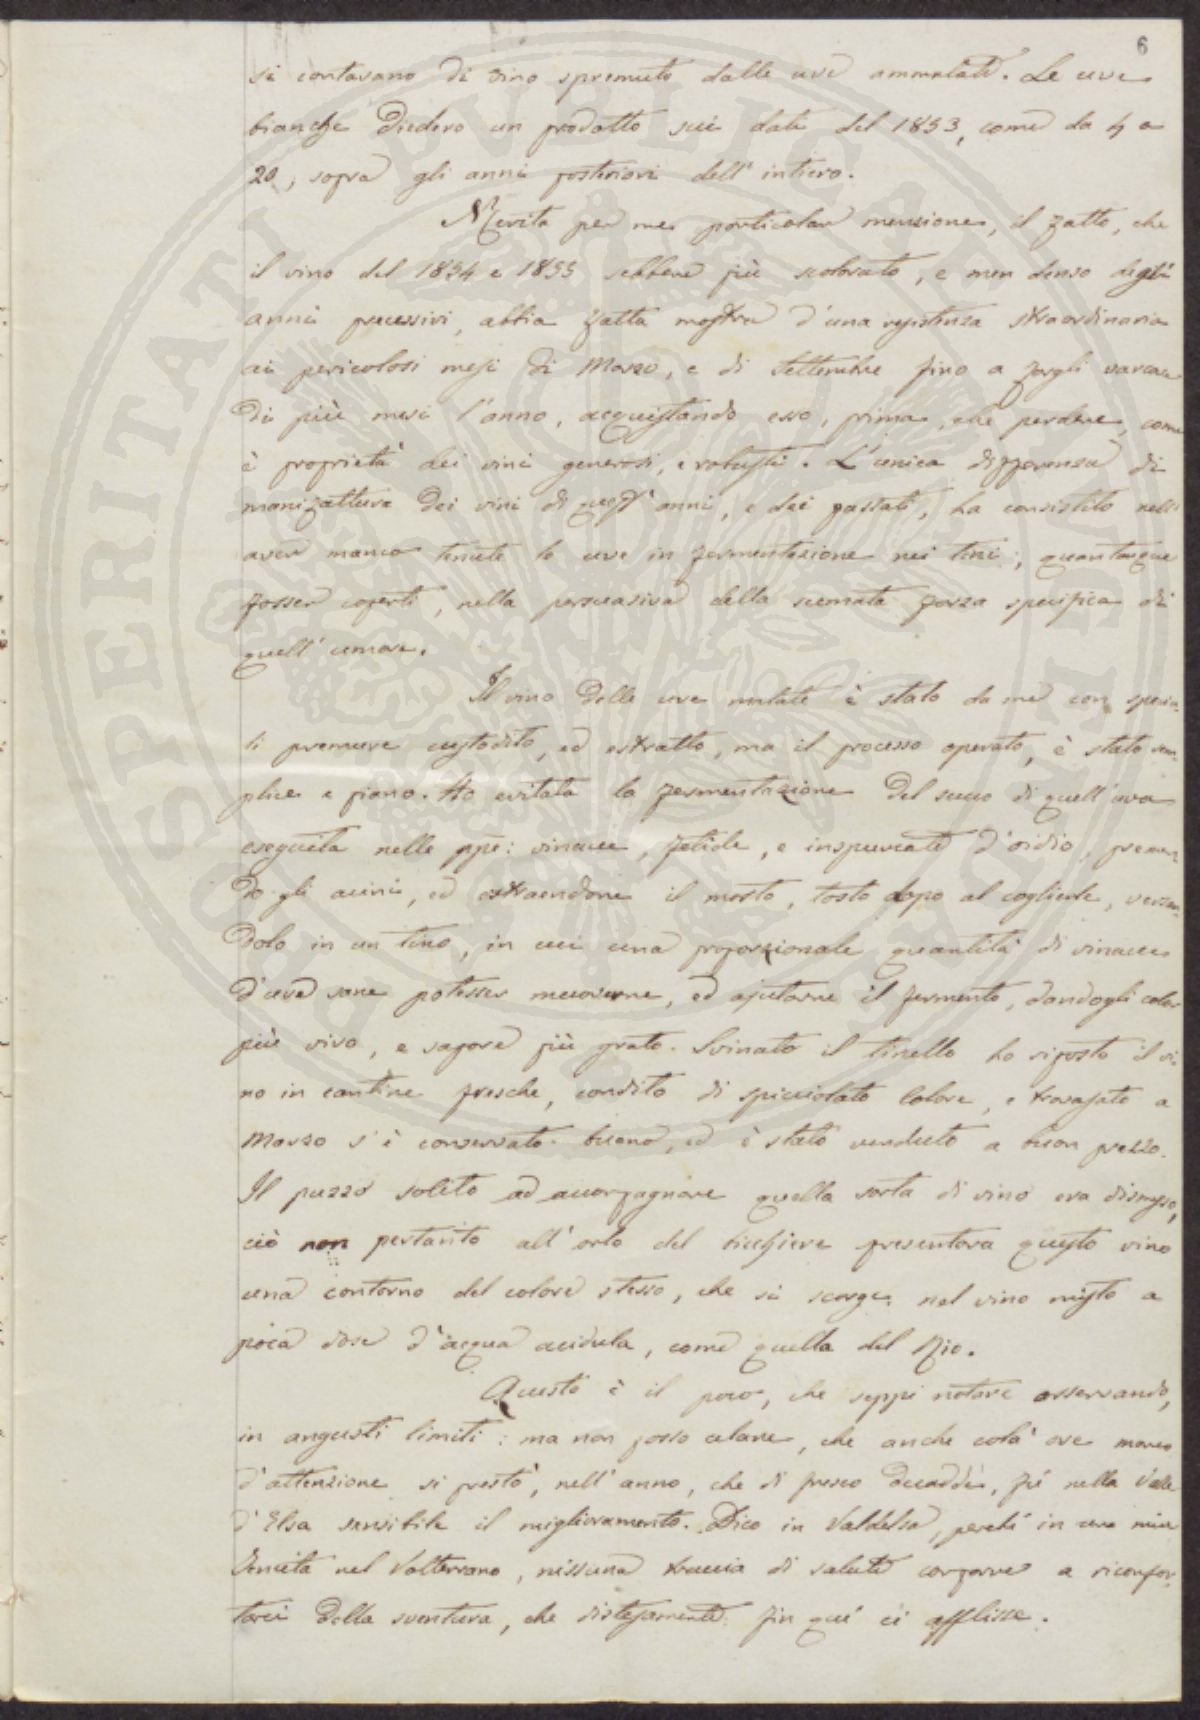 6
si contavano di vino spremuto dalle uve ammalate. Le uve
bianche diedero un prodotto sui dati del 1853, come da 4 a
20, sopra gli anni posteriori dell' intiero.
Merita per me particolar menzione, il fatto, che
il vino del 1854 e 1855 sebbene più scolorato, e men denso degli
anni precessivi, abbia fatta mostra d'una resistenza straordinaria
ai pericolosi mesi di Marzo, e di Settembre fino a fargli varcare
di più mesi l'anno, acquistando esso, prima, che perdere, come
è proprietà dei vini generosi, e robusti. L'unica differenza di
manifattura dei vini di quest' anni, e dei passati, ha consistito nell'
aver manco tenute le uve in fermentazione nei tini; quantunque
fosser coperti, nella persuasiva della scemata forza specifica di
quell' umore.
Il vino delle uve malate è stato da me con specia-
li premure custodito, ed estratto, ma il processo operato, è stato sem-
plice e piano. Ho evitata la fermentazione del succo di quell' uva
eseguita nelle ppe: vinacce, fetide, e inspurcate d'oidio, premen-
do gli acini, ed estraendone il mosto, tosto dopo al coglierle, verzan-
dolo in un tino, in cui una proporzionale quantità di vinacce
d'uve sane potesser muoverne, ed ajutarne il fermento, dandogli color
più vivo, e sapore più grato. Svinato il tinello ho riposto il vi-
no in cantine fresche, condito di spicciolato Colore, e travasato a
Marzo s'è conservato buono, ed è stato venduto a buon prezzo.
Il puzzo solito ad accompagnare quella sorta di vino era dismesso,
ciò non pertanto all' orlo del bicchiere presentava questo vino
una contorno del colore stesso, che si scorge nel vino misto a
poca dose d'acqua acidula, come quella del Rio.
Questo è il poco, che seppi notare osservando,
in angusti limiti: ma non posso celare, che anche colà ove manco
d'attenzione si prestò, nell' anno, che di fresco decadde, fù nella Valle
d'Elsa sensibile il miglioramento. Dico in Valdelsa, perchè in una mia
Tenuta nel Volterrano, nissuna traccia di salute comparve a riconfor-
tarci della sventura, che distesamente fin qui ci afflisse.
PROSPERITATI PUBLICAE